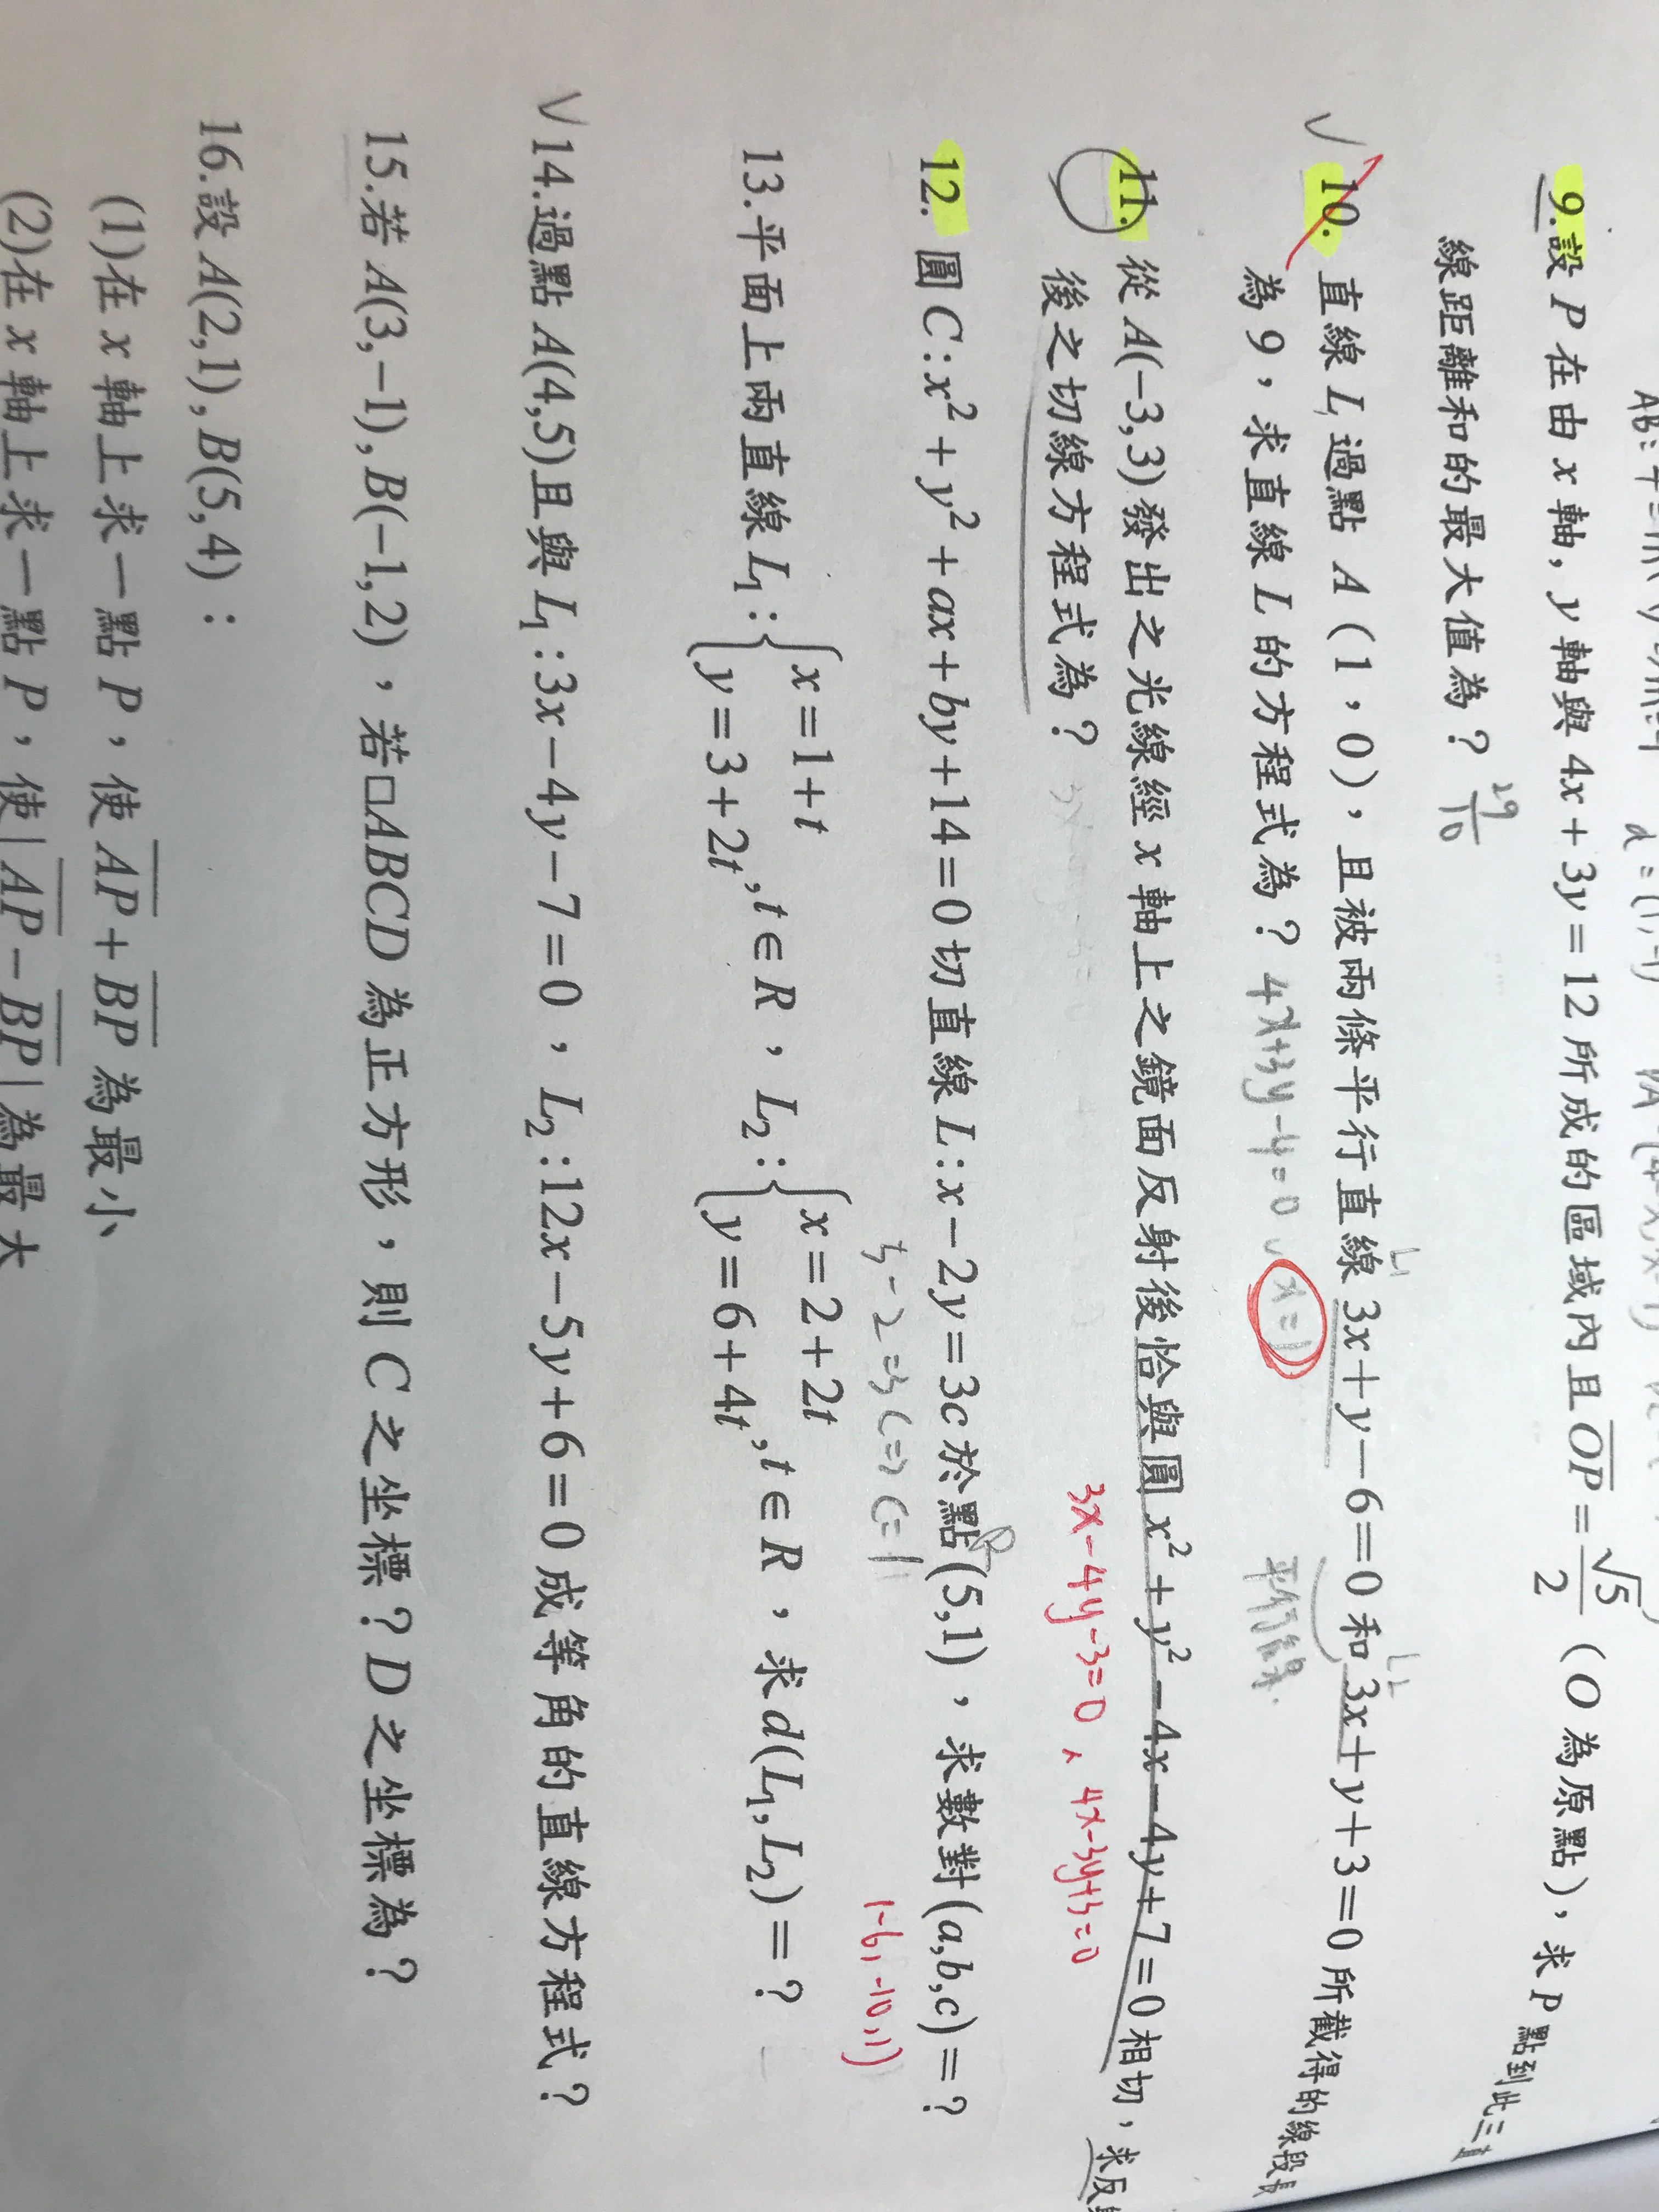 9.設 P 在由 x 軸, y 軸與 4x+3y=12 所成的區域內且 \overline{OP}=\frac{\sqrt{5}}{2} (O 為原點), 求 P 點到此三直
線距離和的最大值為? \frac{29}{10}
10. 直線 L 過點 A(1,0), 且被兩條平行直線 3x+y-6=0 和 3x+y+3=0 所截得的線段長
L1 L2
為 9, 求直線 L 的方程式為? 4x+3y-4=0、x=1 平行線
11. 從 A(-3,3) 發出之光線經 x 軸上之鏡面反射後恰與圓 x²+y²-4x-4y+7=0 相切, 求反
後之切線方程式為? 3x-4y-3=0、4x-3y+3=0
12. 圓 C:x²+y²+ax+by+14=0 切直線 L:x-2y=3c 於點(5,1), 求數對(a,b,c)=?
5-2=3c=> c=1 (-6,-10,1)
13.平面上兩直線 L₁:{x=1+t, y=3+2t, t∈R, L₂:{x=2+2t, y=6+4t, t∈R, 求 d(L₁,L₂)=?
√14.過點 A(4,5)且與 L₁:3x-4y-7=0, L₂:12x-5y+6=0 成等角的直線方程式?
15.若 A(3,-1),B(-1,2), 若□ABCD 為正方形, 則 C 之坐標? D 之坐標為?
16.設 A(2,1),B(5,4):
(1)在 x 軸上求一點 P, 使 \overline{AP}+\overline{BP} 為最小
(2)在 x 軸上求一點 P, 使|\overline{AP}-\overline{BP}|為最大